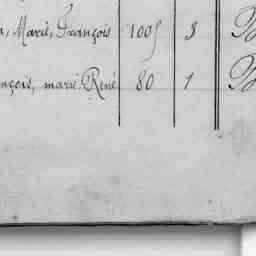 Marie, François 100 3 B
nçois, marie René 80 1 B